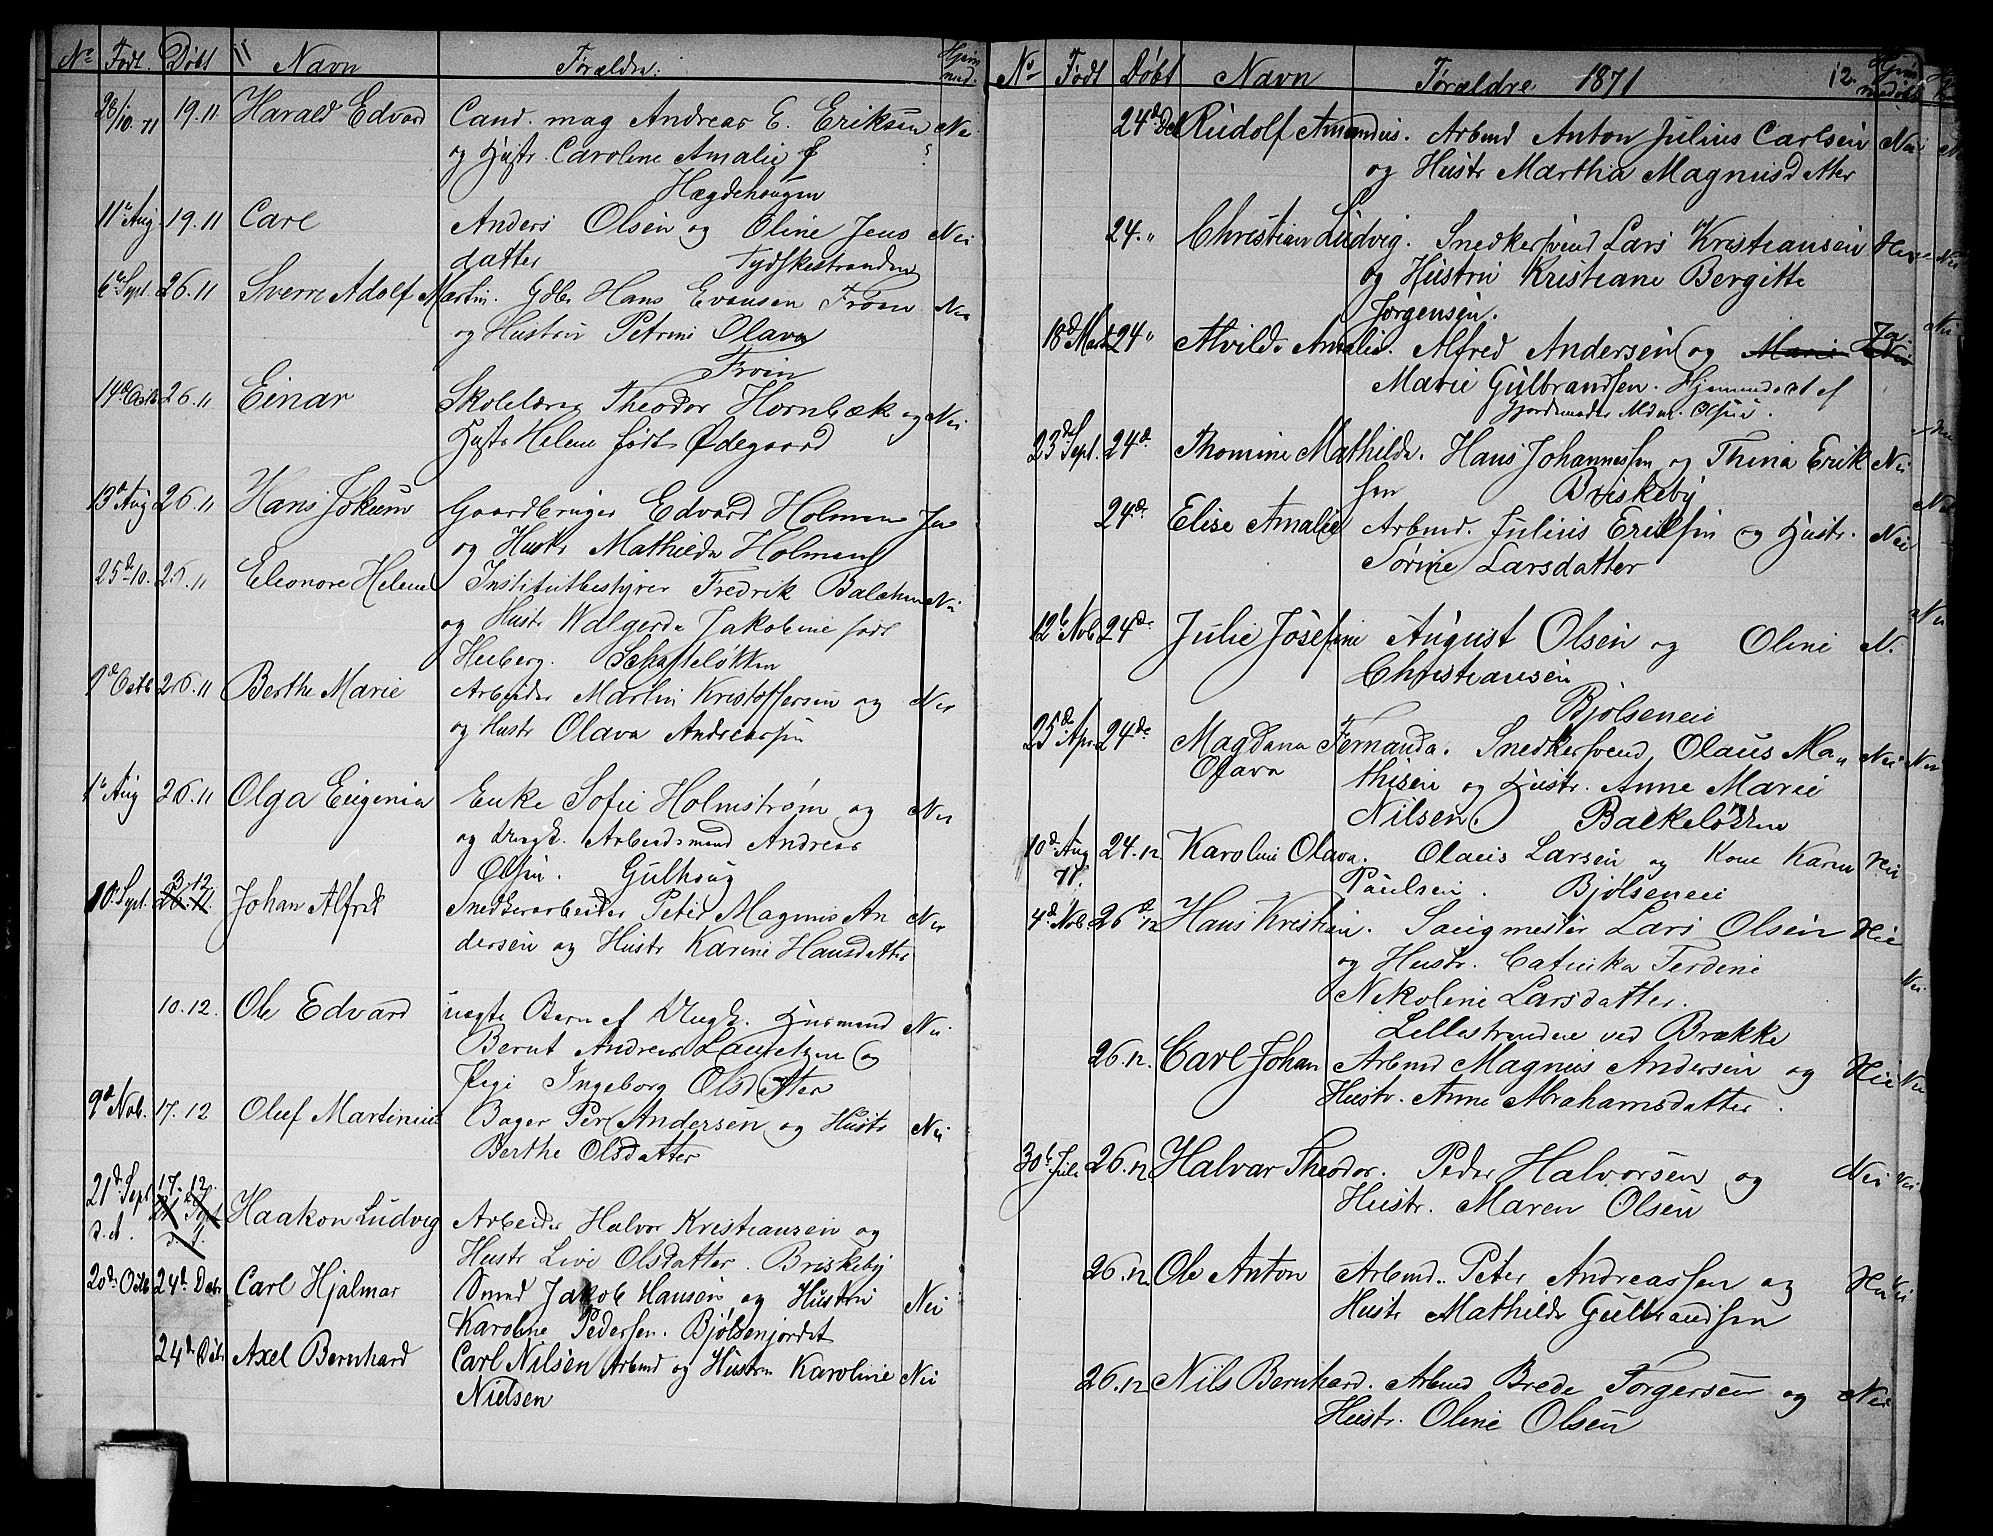 No Født. Døbt 11 Navn Forældre. Hjem med.
28/10. 71 19.11 Harald Edvard Cand. mag Andreas E. Eriksen Nei
og Hustr. Caroline Amalie f
Hægdehaugen
11te Aug 19.11 Carl Anders Olsen og Oline Jens Nei
datter Tydskestranden
6te Sept. 26.11 Sverre Adolf Martin. Gdb. Hans Evensen Frøen Nei
og Hustru Petrine Olava
Frøen
14de Octb 26.11 Einar Skolelærer Theodor Hornbæk og Nei
Hustr Helene født Ødegaard
13de Aug 26.11 Hans Jokum Gaardbruger Edvard Holmen Ja
og Hustr Mathilde Holmen
25de 10. 26.11 Eleonore Helene Institutbestyrer Fredrik Balchen Nei
og Hustr Walgerda Jakobine født
Heiberg.
9de Octb 26.11 Berthe Marie Arbeider Martin Kristoffersen og Nei
og Hustr Olava Andreassen
1te Aug 26.11 Olga Eugenia Enke Sofie Holmstrøm og Nei
og Ungk. Arbeidsmand Andreas
Olsen. Gulhaug
10de Sept. 3.12 Johan Alfred Snedkerarbeider Peter Magnus An Nei
dersen og Hustr Karine Hansdatter
10.12. Ole Edvard uægte Barn af Ungk. Husmand Nei
Bernt Andreas Lauritzen og
Pige Ingeborg Olsdatter
9de Nob. 17.12 Oluf Martinius Bager Per Andersen og Hustr Nei
Berthe Olsdatter
21de Sept 17.12.
d. A. Haakon Ludvig Arbeider Halvor Kristiansen og
Hustr Live Olsdatter. Briskeby
20de Octb 24de Decbr Carl Hjalmar Smed Jakob Hansen og Hustru Nei
Karoline Pedersen. Bjølsenjordet
24de Dcbr Axel Bernhard Carl Nilsen Arbmd og Hustru Karoline Nei
Nielsen
No Født Døbt Navn Forældre 1871 12. Hjem medøbt
24de Dec Rudolf Amandus. Arbmd Anton Julius Carlsen Nei
og Hustr Martha Magnusdatter
24. " Christian Ludvig. Snedkersvend Lars Kristiansen Nei
og Hustru Kristiane Bergitte
Jørgensen.
18de Marts 24 " Alvilde Amalie. Alfred Andersen og Marie Ja
Marie Gulbrandsen. Hjemmedøbt af
Gjordemoder Mdm. Olsen.
23de Sept. 24de Thomine Mathilde. Hans Johannessen og Thina Erik Nei
sen Briskeby
24de Elise Amalie Arbmd. Julius Eriksen og Hustr. Nei
Sørine Larsdatter
12te Nob 24de Julie Josefine August Olsen og Oline N.
Christiansen
Bjølseneie
25de Apr 24de Magdana Fernanda. Snedkersvend Olaus Ma Nei
Olava thisen og Hustr. Anne Marie
Nilsen. Bakkeløkken
10de Aug 24.12 Karoline Olava. Olaus Larsen og Kone Karen Nei
71. Paulsen. Bjølseneie
4de Nob 26de 12 Hans Kristian. Saugmester Lars Olsen Nei
og Hustr. Catinka Ferdine
Nikoline Larsdatter.
Lillestranden ved Brække
26.12. Carl Johan Arbmd Magnus Andersen og Nei
Hustr. Anne Abrahamsdatter.
30te Juli 26.12 Halvar Theodor. Peder Halvorsen og Nei
Hustr. Maren Olsen
26.12 Ole Anton Arbmd. Peter Andreassen og Nei
Hustr Mathilde Gulbrandsen
26.12 Nils Bernhard. Arbmd Brede Torgersen og Nei
Hustr. Oline Olsen